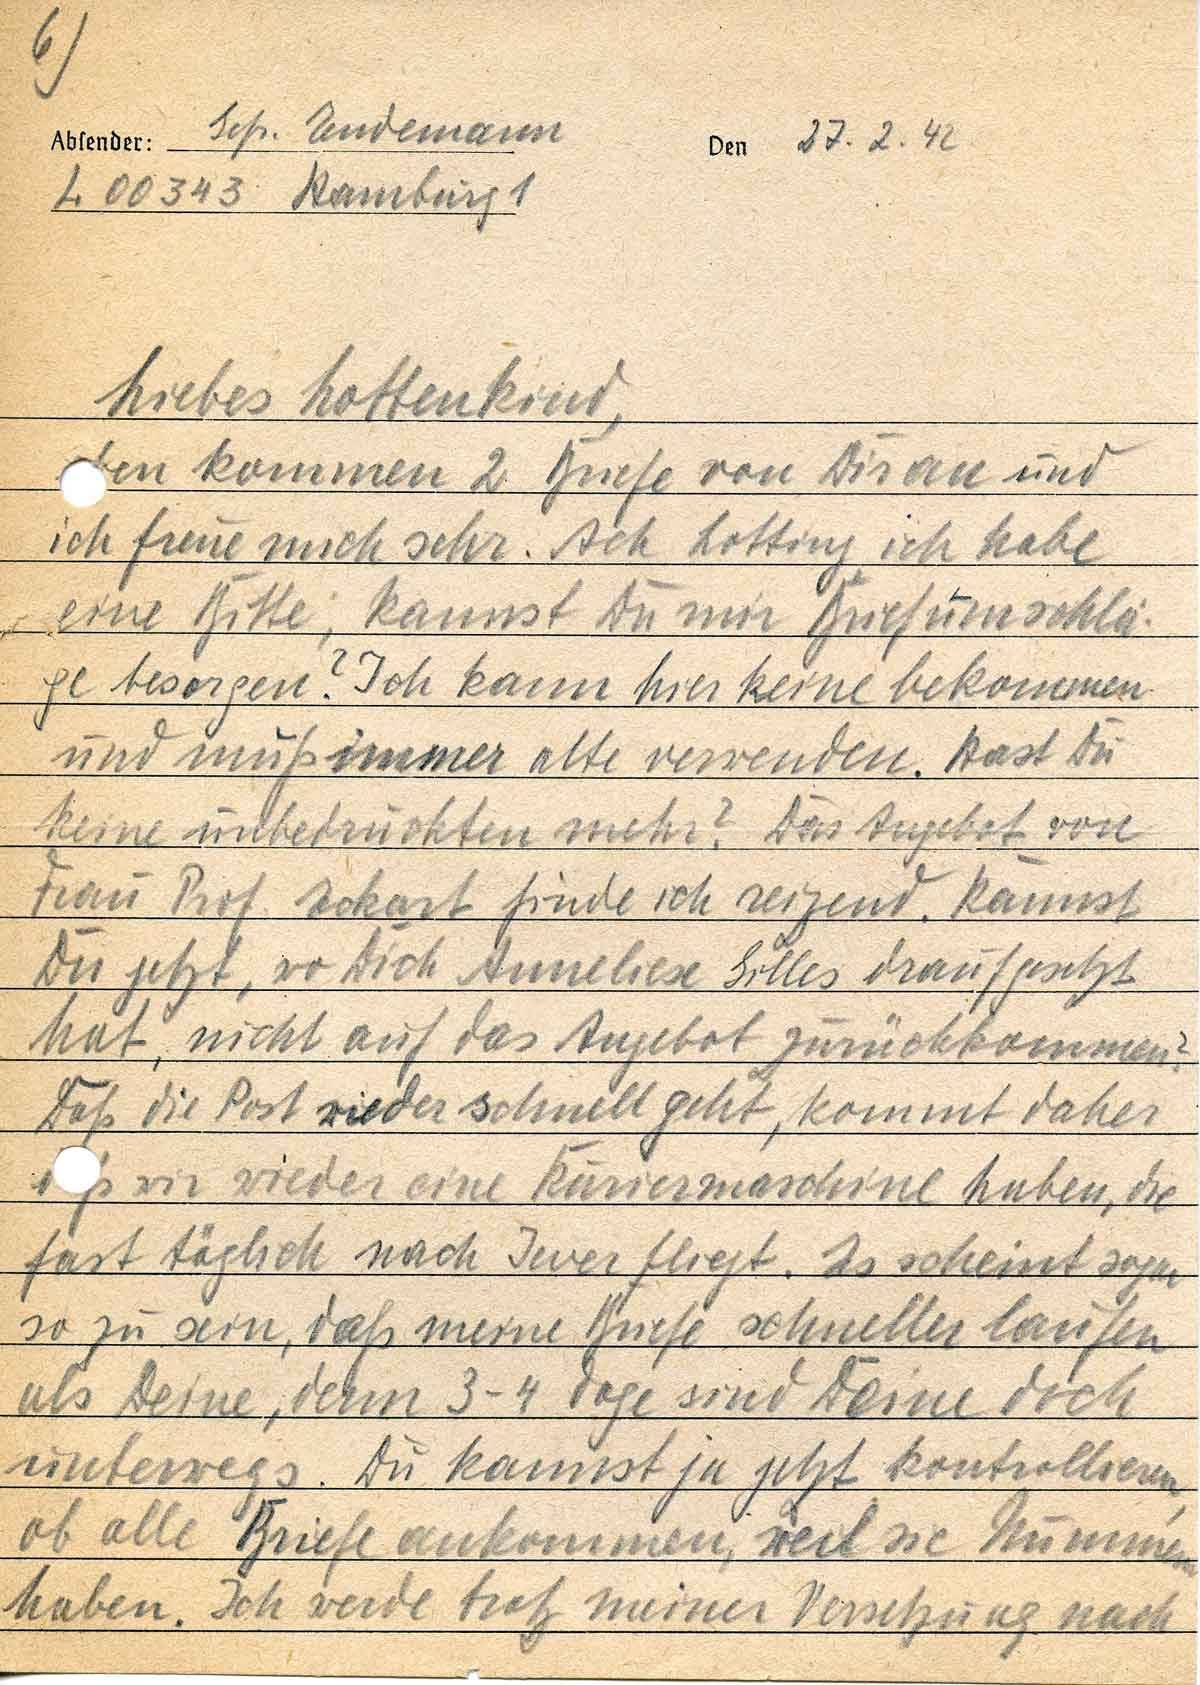 6)
Absender: Gefr. Endemann
Den 27. 2. 42
L 00343 Hamburg 1
Liebes Lottenkind,
eben kommen 2 Briefe von Dir an und
ich freue mich sehr. Ach Lotting ich habe
eine Bitte, kannst Du mir Briefumschlä-
ge besorgen? Ich kann hier keine bekommen
und muß immer alte verwenden. Hast Du
keine unbedruckten mehr? Das Angebot von
Frau Prof. Eckart finde ich reizend. Kannst
Du jetzt, wo Dich Anneliese Gilles draufgesetzt
hat, nicht auf das Angebot zurückkommen?
Daß die Post wieder schnell geht, kommt daher
daß wir wieder eine Kuriermaschine haben, die
fast täglich nach Jever fliegt. Es scheint sogar
so zu sein, daß meine Briefe schneller laufen
als Deine, denn 3-4 Tage sind Deine doch
unterwegs. Du kannst ja jetzt kontrollieren,
ob alle Briefe ankommen, weil sie Nummern
haben. Ich werde trotz meiner Versetzung nach